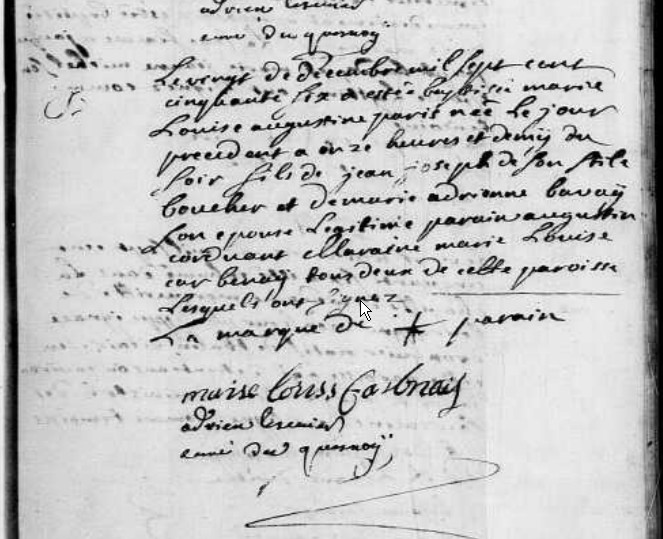 adrien lesenier
curé du quesnoÿ
Le vingt de decembre mil sept cent
cinquante six a estée baptisée marie
Louise augustine parit née le jour
precedent a onze heures et demÿ du
soir fille de jean joseph de son stile
boucher et de marie adrienne bavaÿ
son epouse Legitime parain augustin
corduant Maraine marie Louise
carbenaÿ tous deux de cette paroisse
Lesquels ont signez
La marque de parain
marie Louiss Carbnaiÿ
adrien lesenier
curé du quesnoÿ